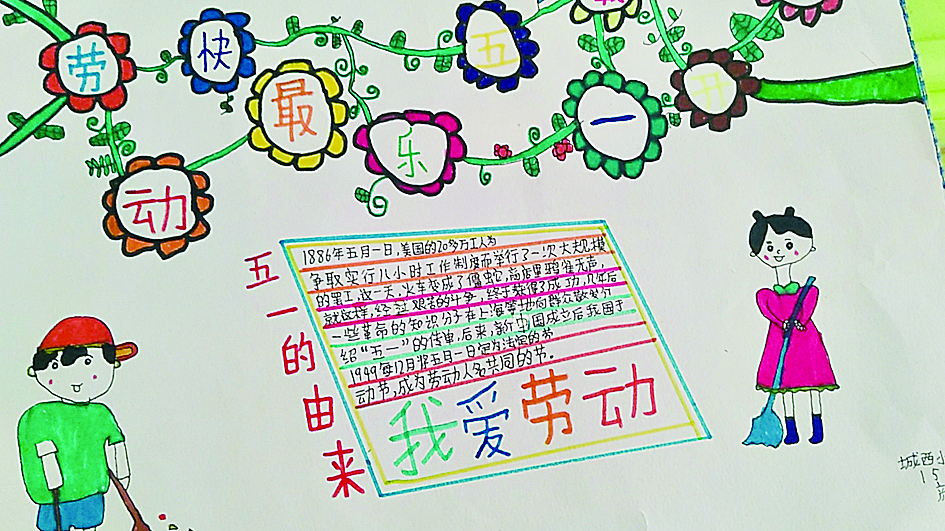 劳 快 五
动 最 乐 一
五一的由来
1886年五月一日,美国的20多万工人为
争取实行八小时工作制度而举行了一次大规模
的罢工,这一天,火车变成了僵蛇,商店里鸦雀无声,
就这样,经过艰苦的斗争,终于获得了成功,几年后
一些革命的知识分子在上海等地向群众散发介
绍“五一”的传单,后来,新中国成立后我国于
1949年12月将五月一日定为法定的劳
动节,成为劳动人名共同的节。
我爱劳动
城西小
15